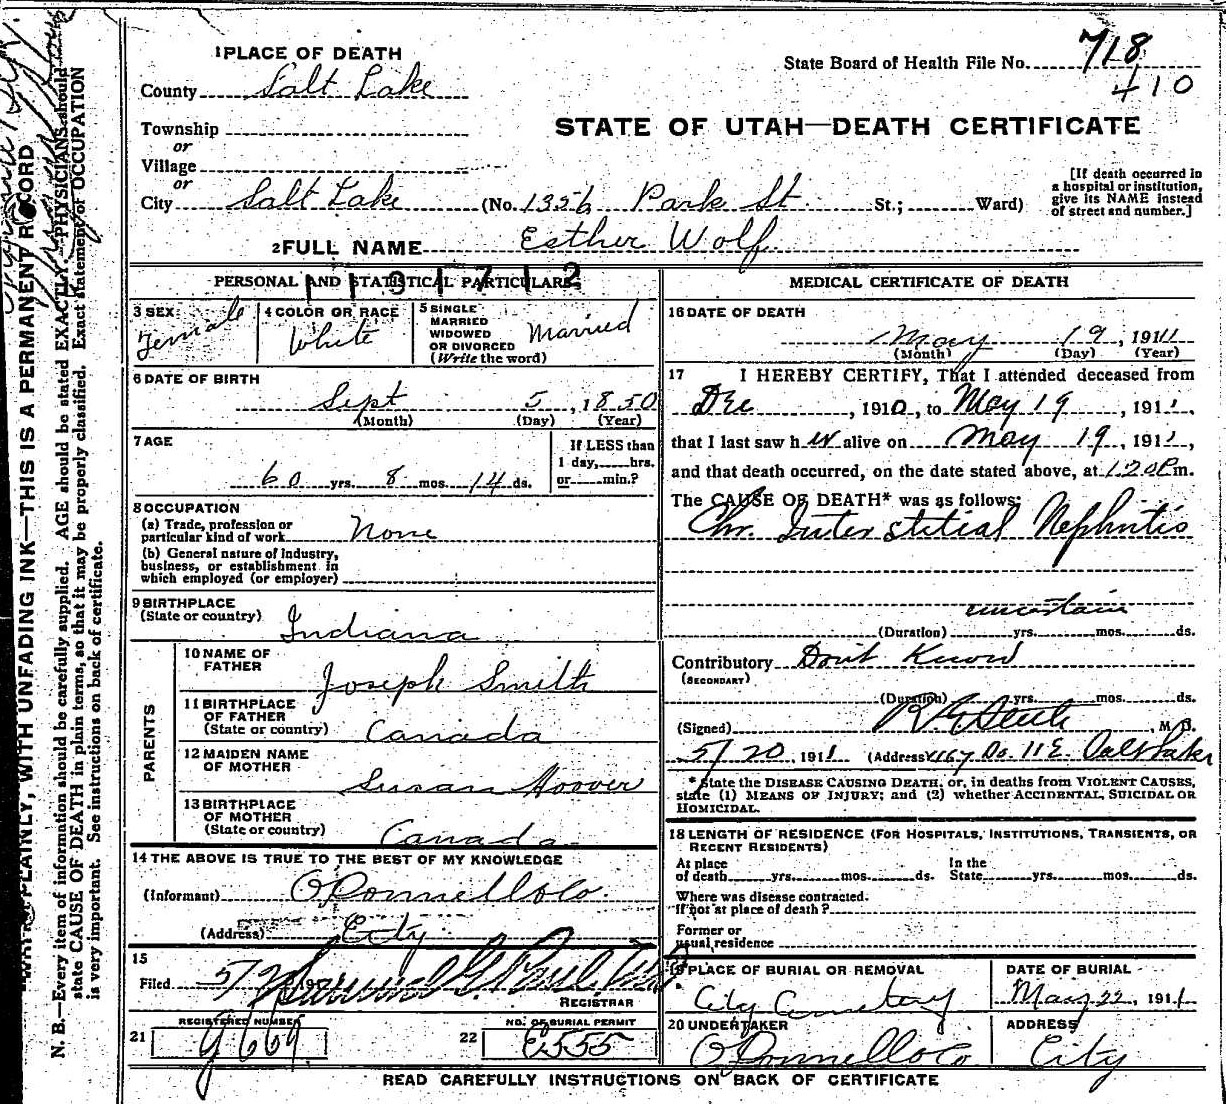 1 PLACE OF DEATH
State Board of Health File No. 718
410
County Salt Lake
STATE OF UTAH—DEATH CERTIFICATE
Township
or
Village
or
City Salt Lake (No. 1356 Park St. St.; Ward)
[If death occurred in a hospital or institution, give its NAME instead of street and number.]
2 FULL NAME Esther Wolf
PERSONAL AND STATISTICAL PARTICULARS
3 SEX Female
4 COLOR OR RACE White
5 SINGLE MARRIED WIDOWED OR DIVORCED (Write the word) Married
6 DATE OF BIRTH
Sept 5, 1850
(Month) (Day) (Year)
7 AGE
60 yrs. 8 mos. 14 ds.
If LESS than 1 day, hrs. or min.?
8 OCCUPATION
(a) Trade, profession or particular kind of work None
(b) General nature of industry, business, or establishment in which employed (or employer)
9 BIRTHPLACE
(State or country) Indiana
PARENTS
10 NAME OF FATHER Joseph Smith
11 BIRTHPLACE OF FATHER (State or country) Canada
12 MAIDEN NAME OF MOTHER Susan Hoover
13 BIRTHPLACE OF MOTHER (State or country) Canada
14 THE ABOVE IS TRUE TO THE BEST OF MY KNOWLEDGE
(Informant) O'Donnell & Co.
(Address) City
15
Filed 5/2
REGISTRAR
21 REGISTERED NUMBER
22 NO. OF BURIAL PERMIT E555
MEDICAL CERTIFICATE OF DEATH
16 DATE OF DEATH
May 19, 1911
(Month) (Day) (Year)
17 I HEREBY CERTIFY, That I attended deceased from
Dec, 1910, to May 19, 1911,
that I last saw her alive on May 19, 1911,
and that death occurred, on the date stated above, at 1.20 P.m.
The CAUSE OF DEATH* was as follows:
Chr. Interstitial Nephritis
uncertain
(Duration) yrs. mos. ds.
Contributory Don't Know
(SECONDARY)
(Duration) yrs. mos. ds.
(Signed) M. D.
5/20, 1911 (Address) 1167 So. 11 E. Salt Lake
* State the DISEASE CAUSING DEATH, or, in deaths from VIOLENT CAUSES, state (1) MEANS OF INJURY; and (2) whether ACCIDENTAL, SUICIDAL OR HOMICIDAL.
18 LENGTH OF RESIDENCE (FOR HOSPITALS, INSTITUTIONS, TRANSIENTS, OR RECENT RESIDENTS)
At place of death yrs. mos. ds.
In the State yrs. mos. ds.
Where was disease contracted.
if not at place of death?
Former or usual residence
19 PLACE OF BURIAL OR REMOVAL City Cemetery
DATE OF BURIAL May 22, 1911
20 UNDERTAKER O'Donnell & Co.
ADDRESS City
READ CAREFULLY INSTRUCTIONS ON BACK OF CERTIFICATE
WRITE PLAINLY, WITH UNFADING INK—THIS IS A PERMANENT RECORD
N. B.—Every item of information should be carefully supplied. AGE should be stated EXACTLY. PHYSICIANS should
state CAUSE OF DEATH in plain terms, so that it may be properly classified. Exact statement of OCCUPATION
is very important. See instructions on back of certificate.